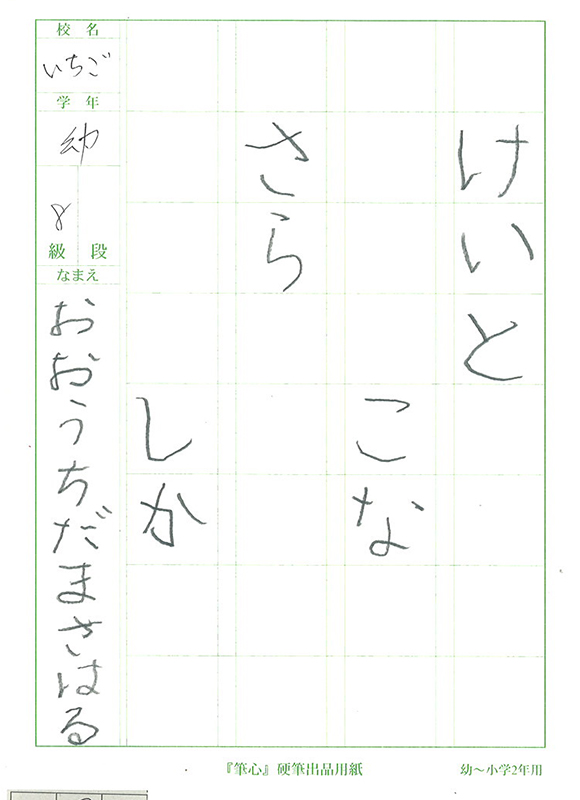 けいと
こな
さら
しか
校名
いちご
学年
幼
8
級 段
なまえ
おおうちだまさはる
『筆心』硬筆出品用紙
幼〜小学2年用